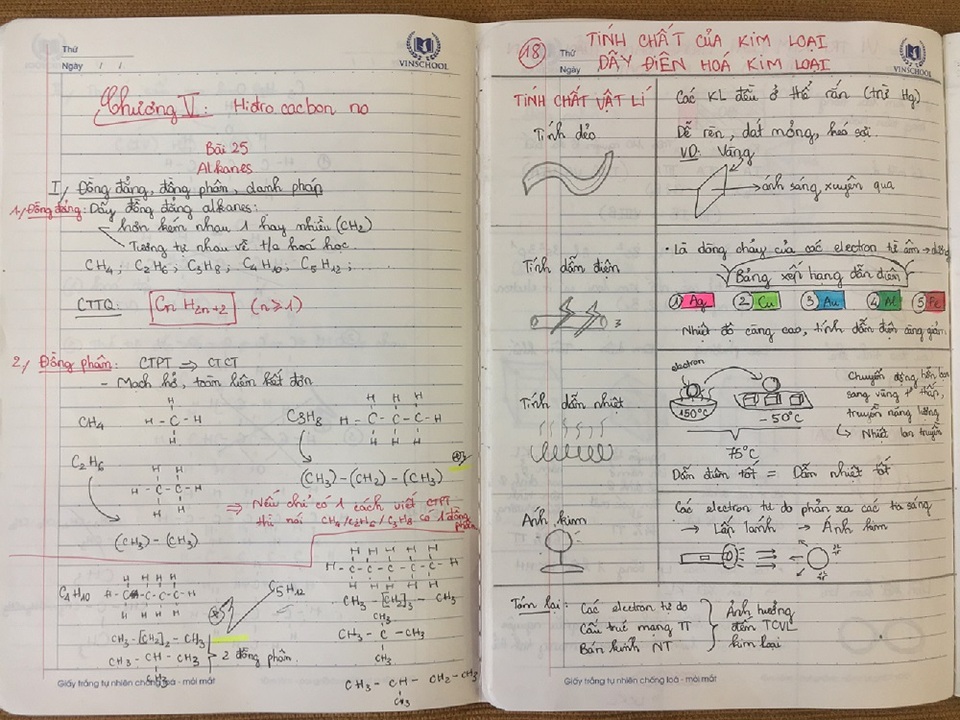 Thứ
Ngày / /
VINSCHOOL
Chương V: Hidro cacbon no
Bài 25
Alkanes
I/ Đồng đẳng, đồng phân, danh pháp
1/ Đồng đẳng: Dãy đồng đẳng alkanes:
hơn kém nhau 1 hay nhiều (CH2)
Tương tự nhau về t/c hoá học.
CH4; C2H6; C3H8; C4H10; C5H12; ...
CTTQ: CnH2n+2 (n≥1)
2/ Đồng phân: CTPT ⇒ CTCT
- Mạch hở, toàn liên kết đơn
CH4
H
H - C - H
H
C3H8
H H H
H - C - C - C - H
H H H
(CH3) - (CH2) - (CH3)
C2H6
H H
H - C - C - H
H H
(CH3) - (CH3)
⇒ Nếu chỉ có 1 cách viết CTPT
thì nói CH4/C2H6/C3H8 có 1 đồng
phân
C4H10
H H H H
H - C - C - C - C - H
H H H H
CH3 - [CH2]2 - CH3
CH3 - CH - CH3
CH3
2 đồng phân.
C5H12
H H H H H
H - C - C - C - C - C - H
H H H H H
CH3 - [CH2]3 - CH3
CH3
CH3 - C - CH3
CH3
CH3 - CH - CH2 - CH3
CH3
Giấy trắng tự nhiên chống loá - mỏi mắt
18
Thứ
Ngày
TÍNH CHẤT CỦA KIM LOẠI
DÃY ĐIỆN HOÁ KIM LOẠI
VINSCHOOL
TÍNH CHẤT VẬT LÍ
Các KL đều ở thể rắn (trừ Hg)
Tính dẻo
Dễ rèn, dát mỏng, kéo sợi.
VD: Vàng
ánh sáng xuyên qua
Tính dẫn điện
• Là dòng chảy của các electron từ âm → dương
Bảng xếp hạng dẫn điện
1 Ag 2 Cu 3 Au 4 Al 5 Fe
Nhiệt độ càng cao, tính dẫn điện càng giảm
Tính dẫn nhiệt
electron
150°C
- 50°C
75°C
Chuyển động hỗn loạn
sang vùng t° thấp,
truyền năng lượng
↳ Nhiệt lan truyền
Dẫn điện tốt = Dẫn nhiệt tốt
Ánh kim
Các electron tự do phản xạ các tia sáng
→ Lấp lánh → Ánh kim
Tóm lại: Các electron tự do
Cấu trúc mạng TT
Bán kính NT
Ảnh hưởng
đến TCVL
kim loại
Giấy trắng tự nhiên chống loá - mỏi mắt